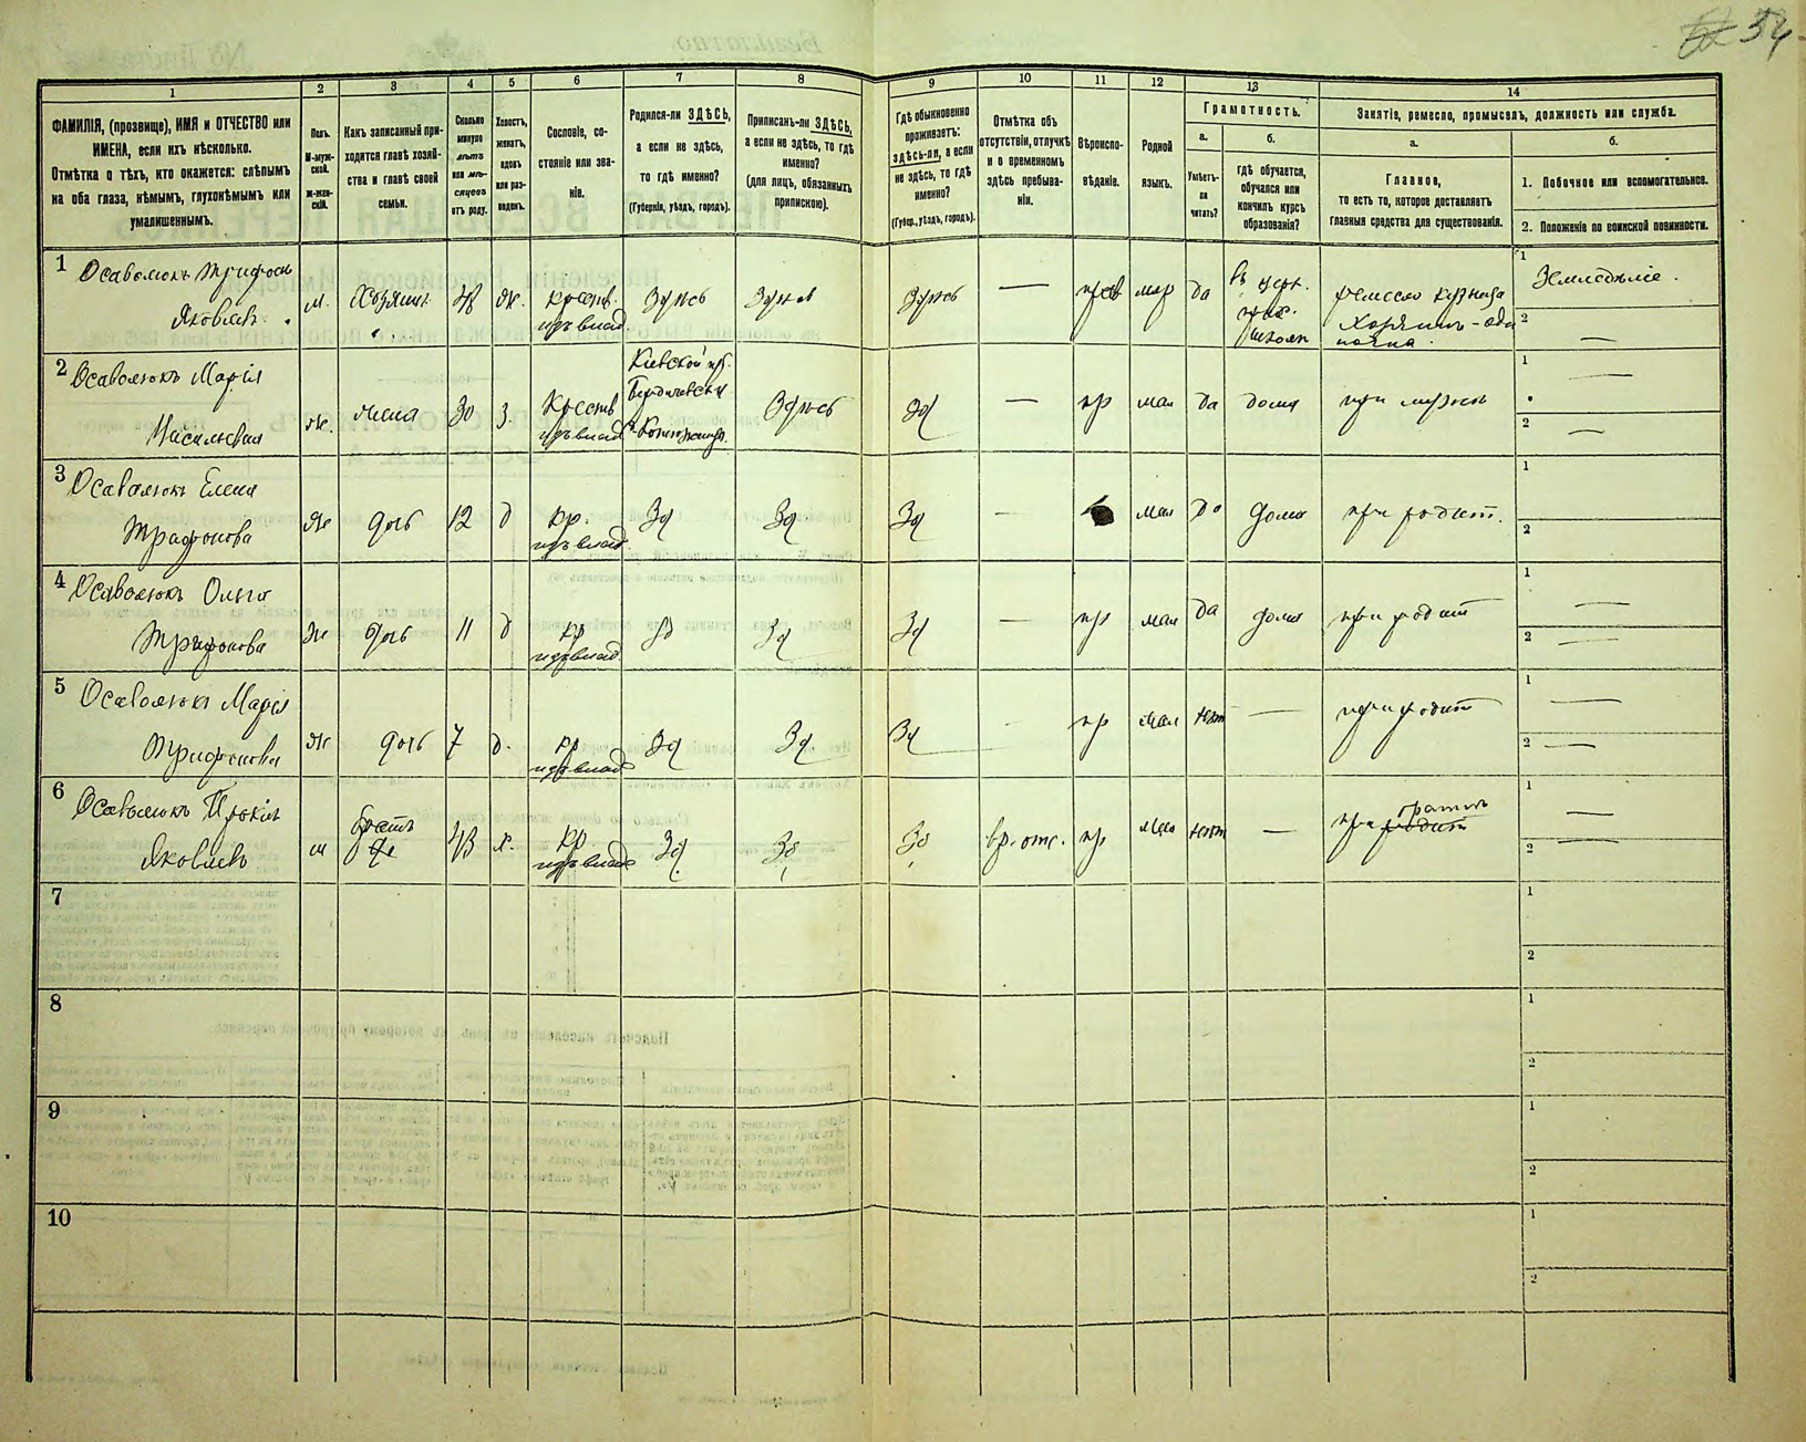 34
1
2
3
4
5
6
7
8
9
10
11
12
13
14
ФАМИЛІЯ, (прозвище), ИМЯ и ОТЧЕСТВО или
ИМЕНА, если ихъ нѣсколько.
Отмѣтка о тѣхъ, кто окажется: слѣпымъ
на оба глаза, нѣмымъ, глухонѣмымъ или
умалишеннымъ.
Полъ.
М-муж-
ской.
Ж-жен-
скій.
Какъ записанный при-
ходится главѣ хозяй-
ства и главѣ своей
семьи.
Сколько
минуло
лѣтъ
или мѣ-
сяцевъ
отъ роду.
Холостъ,
женатъ,
вдовъ
или раз-
веденъ.
Сословіе, со-
стояніе или зва-
ніе.
Родился-ли ЗДѢСЬ,
а если не здѣсь,
то гдѣ именно?
(Губернія, уѣздъ, городъ).
Приписанъ-ли ЗДѢСЬ,
а если не здѣсь, то гдѣ
именно?
(для лицъ, обязанныхъ
припискою).
Гдѣ обыкновенно
проживаетъ:
здѣсь-ли, а если
не здѣсь, то гдѣ
именно?
(Губер., уѣздъ, городъ).
Отмѣтка объ
отсутствіи, отлучкѣ
и о временномъ
здѣсь пребыва-
ніи.
Вѣроиспо-
вѣданіе.
Родной
языкъ.
Грамотность.
а.
Умѣетъ-
ли
читать?
б.
гдѣ обучается,
обучался или
кончилъ курсъ
образованія?
Занятіе, ремесло, промыселъ, должность или служба.
а.
Главное,
то есть то, которое доставляетъ
главныя средства для существованія.
б.
1. Побочное или вспомогательное.
2. Положеніе по воинской повинности.
1 Осаволюкъ Трифонъ
Яковлевъ
м. Хозяинъ 38 ж. крестьян. изъ влад. Здѣсь Здѣсь Здѣсь — прав мар да
въ церк.
прих.
школѣ
ремесло кузнеца
Хозяинъ-оди
ночка
1 Земледѣліе.
2 —
2 Осаволюкъ Марія
Васильевна
ж. жена 30 з. Крестьян изъ влад
Кіевской губ.
Бердичевскій
Здѣсь Зд — пр мал да дома при мужѣ
1 —
2 —
3 Осаволюкъ Елена
Трифонова
ж дочь 12 д кр. изъ влад. Зд Зд. Зд — мал да дома при родит.
1
2
4 Осаволюкъ Ольга
Трифонова
ж дочь 11 д кр изъ влад. Зд Зд Зд — пр мал да дома при родит
1 —
2 —
5 Осаволюкъ Марія
Трифонова
ж дочь 7 д. кр изъ влад Зд Зд. Зд — пр мал нѣт — при родит
1 —
2 —
6 Осаволюкъ Прокіп
Яковлевъ
м братъ 43 х. кр изъ влад Зд. Зд Зд вр. отс. пр мал нѣт — при братѣ
1 —
2 —
7
1
2
8
1
2
9
1
2
10
1
2